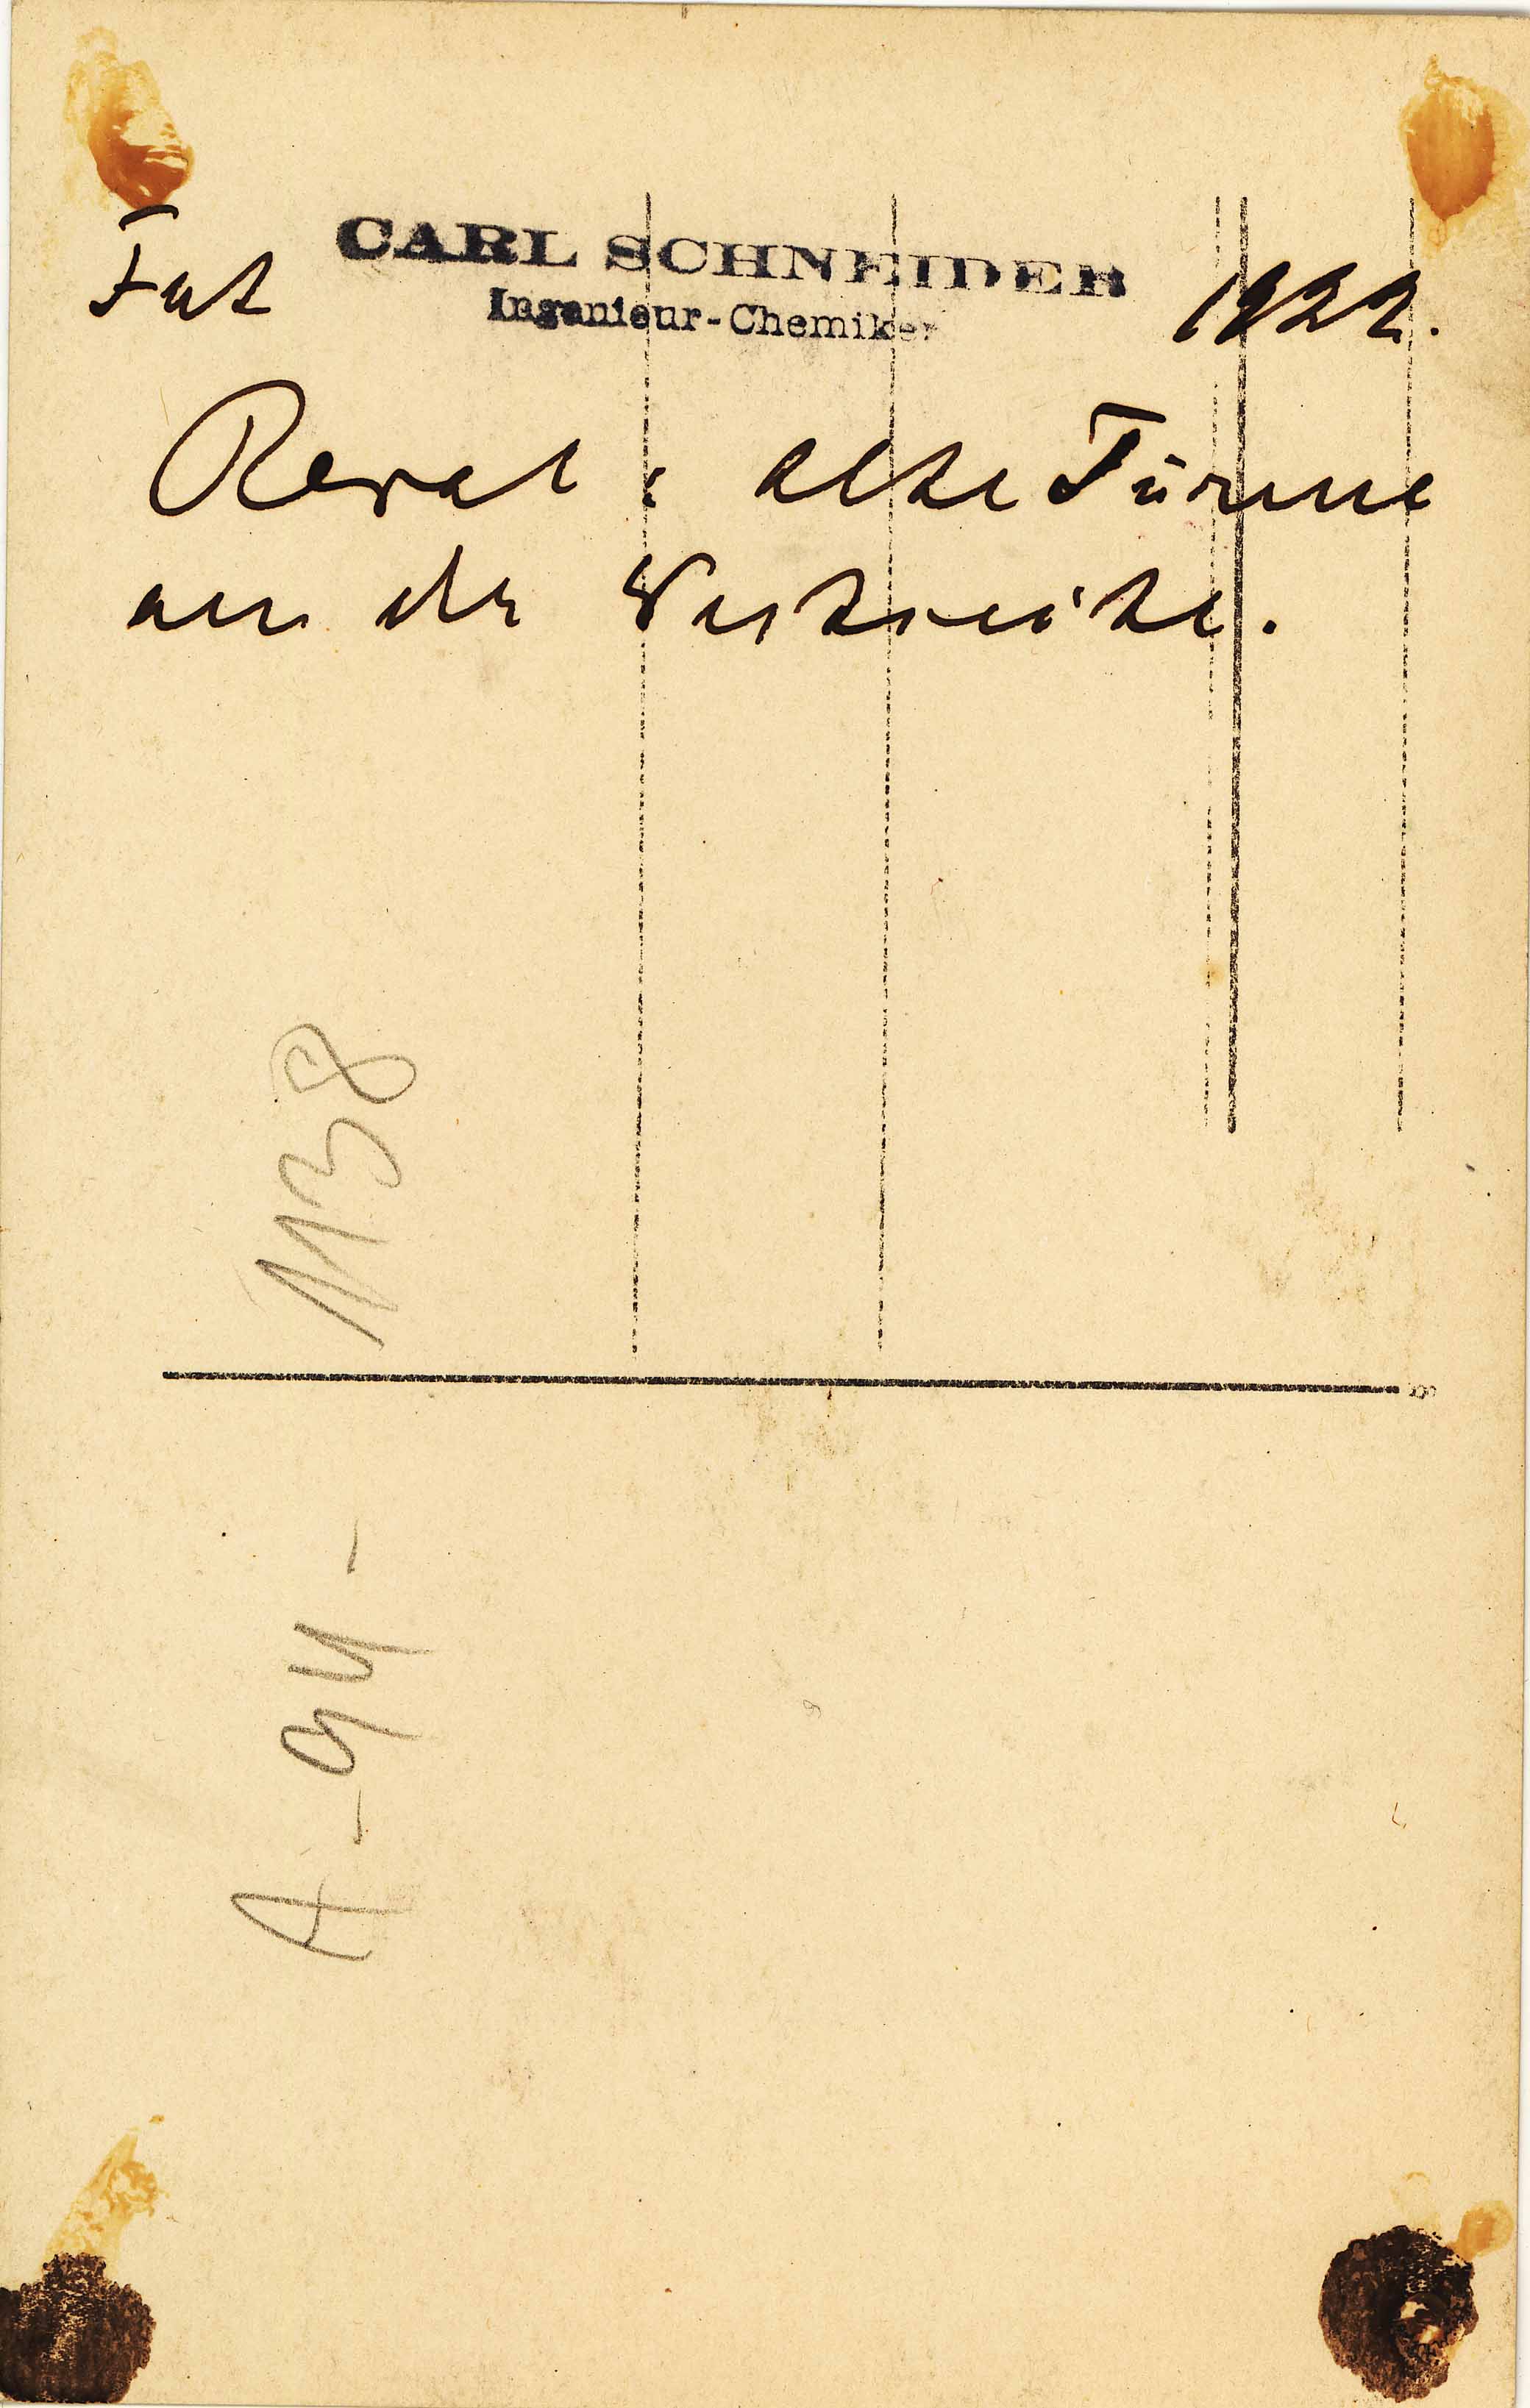 Fot CARL SCHNEIDER 1922.
Ingenieur-Chemiker
Reval: alte Türme
an der Westseite.
1138
A-94-